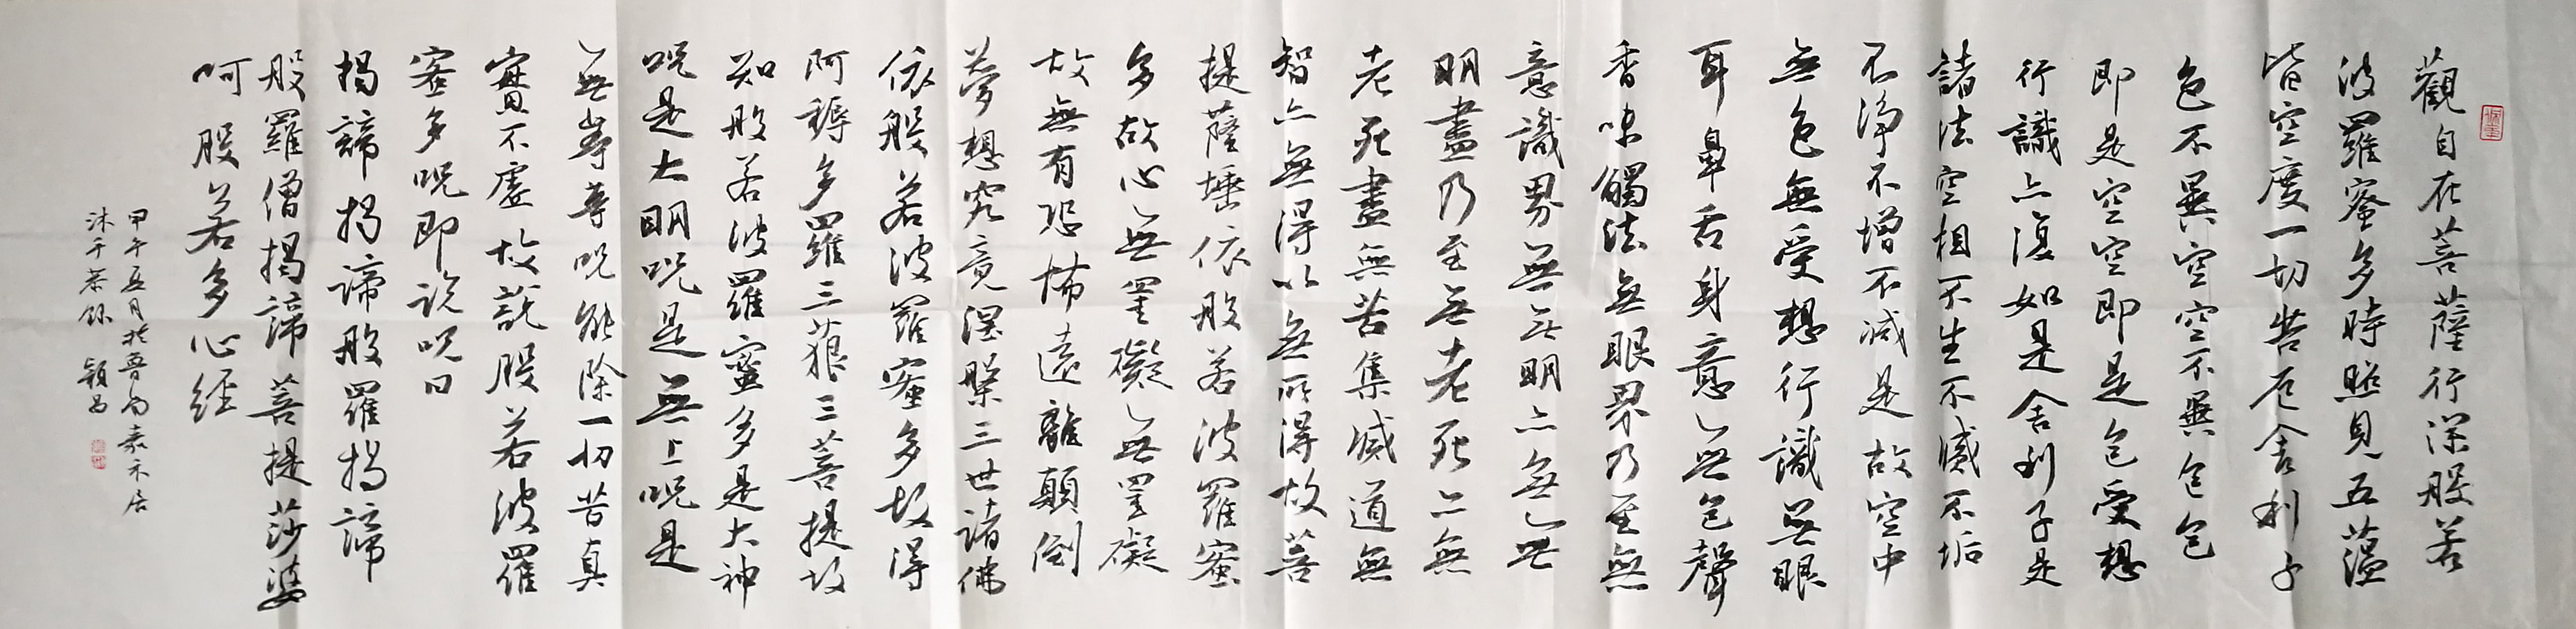 觀自在菩薩行深般若
波羅蜜多時照見五蘊
皆空度一切苦厄舍利子
色不異空空不異色色
即是空空即是色受想
行識亦復如是舍利子是
諸法空相不生不滅不垢
不淨不增不減是故空中
無色無受想行識無眼
耳鼻舌身意無色聲
香味觸法無眼界乃至無
意識界無無明亦無無
明盡乃至無老死亦無
老死盡無苦集滅道無
智亦無得以無所得故菩
提薩埵依般若波羅蜜
多故心無罣礙無罣礙
故無有恐怖遠離顛倒
夢想究竟涅槃三世諸佛
依般若波羅蜜多故得
阿耨多羅三藐三菩提故
知般若波羅蜜多是大神
咒是大明咒是無上咒是
無等等咒能除一切苦真
實不虛故說般若波羅
蜜多咒即說咒曰
揭諦揭諦般羅揭諦
般羅僧揭諦菩提莎婆
呵 般若多心經
甲午五月於魯南嘉禾居
沐手恭錄 穎昌